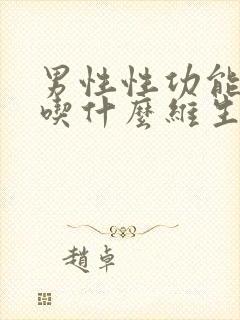 男性性功能
喫什麼維生
趙卓